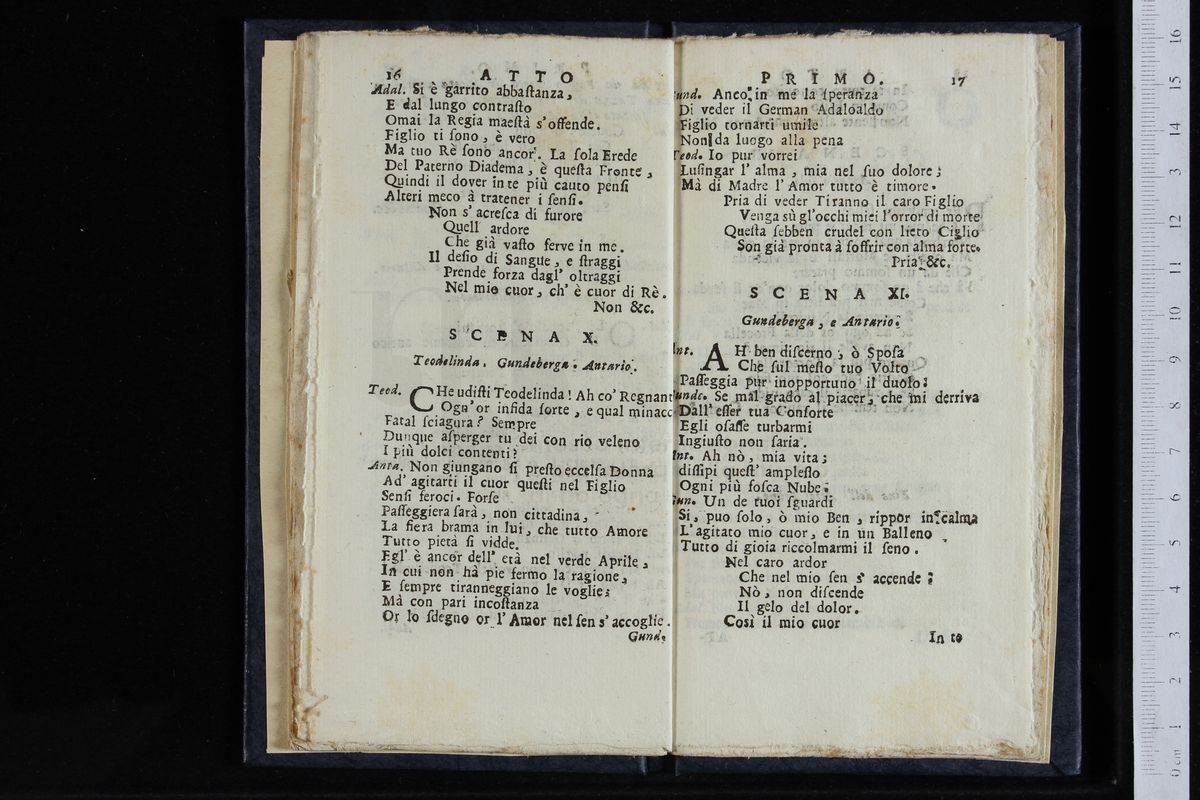 16 ATTO
Adal. Si è garrito abbaſtanza,
E dal lungo contraſto
Omai la Regia maeſtà s'offende.
Figlio ti ſono, è vero
Ma tuo Rè ſono ancor. La ſola Erede
Del Paterno Diadema, è queſta Fronte,
Quindi il dover in te più cauto penſi
Alteri meco à tratener i ſenſi.
Non s'acreſca di furore
Quell ardore
Che già vaſto ferve in me.
Il deſio di Sangue, e ſtraggi
Prende forza dagl' oltraggi
Nel mio cuor, ch' è cuor di Rè.
Non &c.
SCENA X.
Teodelinda, Gundeberga. Antario.
Teod. CHe udiſti Teodelinda! Ah co' Regnant
Ogn' or infida ſorte, e qual minacc
Fatal ſciagura? Sempre
Dunque aſperger tu dei con rio veleno
I più dolci contenti?
Anta. Non giungano ſi preſto eccelſa Donna
Ad' agitarti il cuor queſti nel Figlio
Senſi feroci. Forſe
Paſſeggiera ſarà, non cittadina,
La fiera brama in lui, che tutto Amore
Tutto pietà ſi vidde.
Egl' è ancor dell' età nel verde Aprile,
In cui non hà pie fermo la ragione,
E ſempre tiranneggiano le voglie;
Mà con pari incoſtanza
Or lo ſdegno or l'Amor nel ſen s'accoglie.
Gund.
PRIMO. 17
und. Anco in me la ſperanza
Di veder il German Adaloaldo
Figlio tornarti umile
Non da luogo alla pena
Teod. Io pur vorrei
Luſingar l' alma, mia nel ſuo dolore;
Mà di Madre l' Amor tutto è timore.
Pria di veder Tiranno il caro Figlio
Venga sù gl'occhi miei l'orror di morte
Queſta ſebben crudel con lieto Ciglio
Son già pronta à ſoffrir con alma forte.
Pria &c.
SCENA XI.
Gundeberga, e Antario.
Ant. AH ben diſcerno, ò Spoſa
Che ſul meſto tuo Volto
Paſſeggia pur inopportuno il duolo:
unde. Se mal grado al piacer, che mi derriva
Dall' eſſer tua Conſorte
Egli oſaſſe turbarmi
Ingiuſto non ſaria.
Ant. Ah nò, mia vita;
diſſipi queſt' ampleſſo
Ogni più foſca Nube.
Gun. Un de tuoi ſguardi
Si, puo ſolo, ò mio Ben, rippor in calma
L'agitato mio cuor, e in un Balleno
Tutto di gioia riccolmarmi il ſeno.
Nel caro ardor
Che nel mio ſen s' accende;
Nò, non diſcende
Il gelo del dolor.
Così il mio cuor
In te